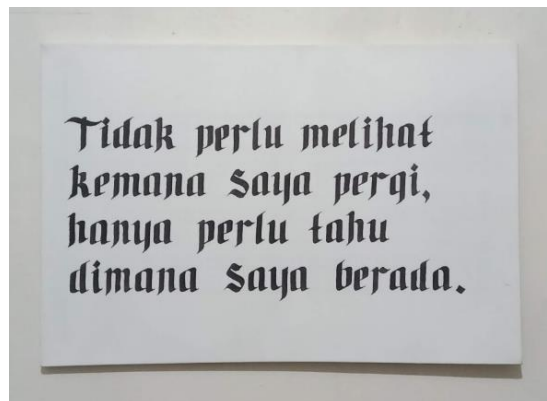 Tidak perlu melihat
kemana saya pergi,
hanya perlu tahu
dimana saya berada.